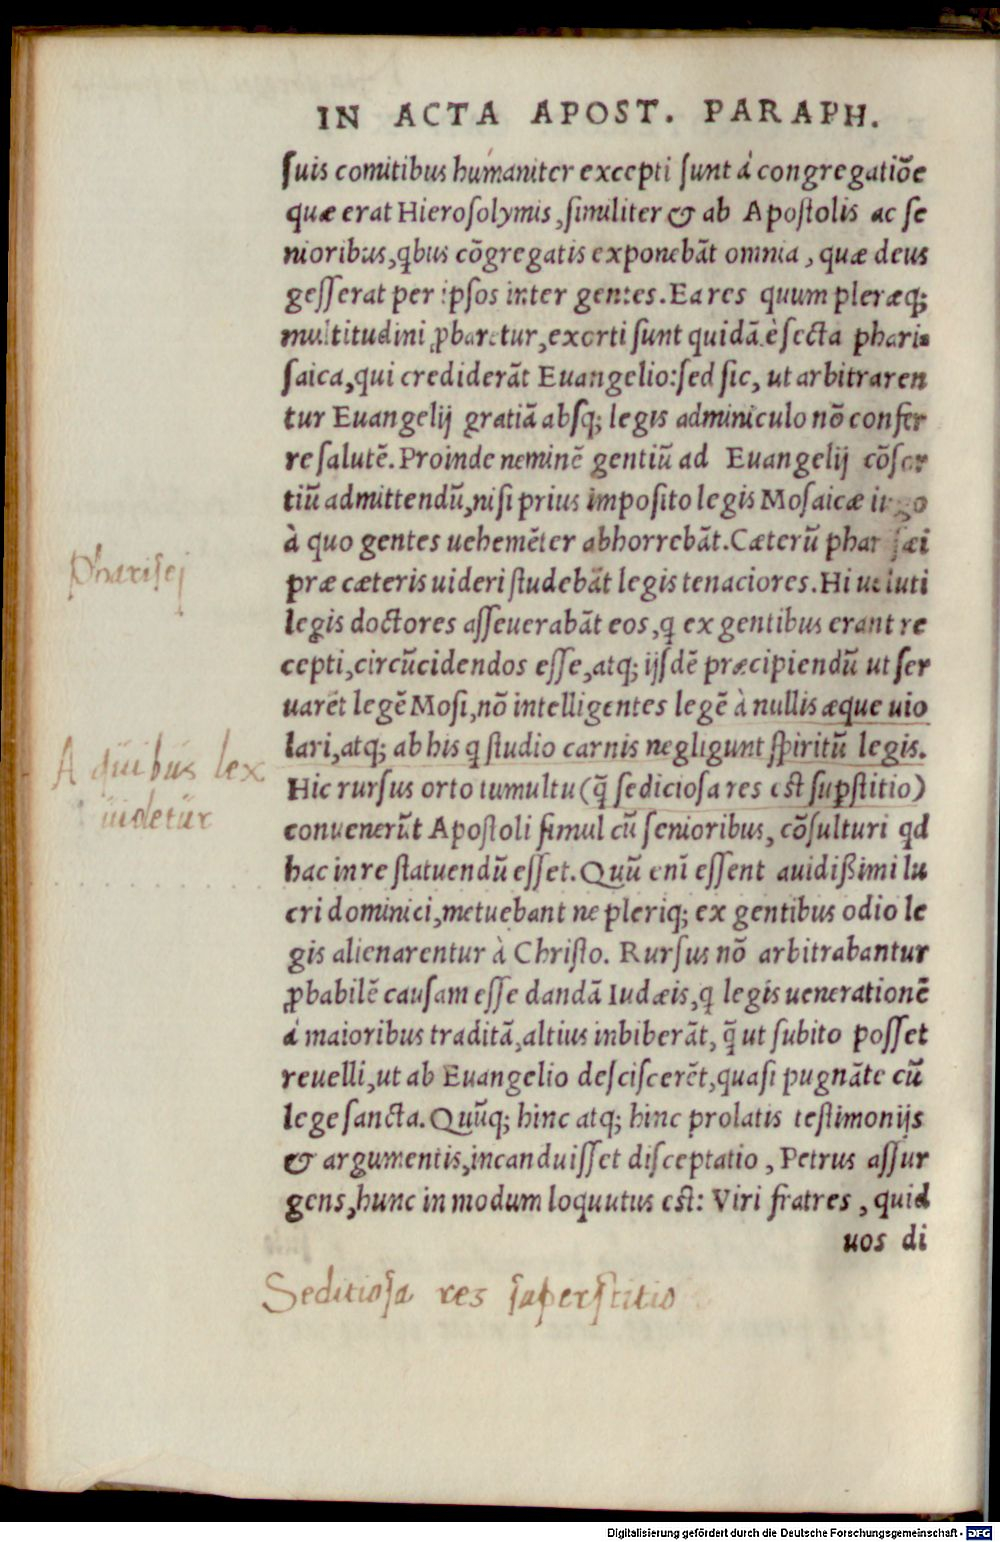 IN ACTA APOST. PARAPH.
ſuis comitibus humaniter excepti ſunt á congregatiõe
quæ erat Hieroſolymis, ſimiliter & ab Apoſtolis ac ſe
nioribus, qbus cõgregatis exponebãt omnia, quæ deus
geſſerat per ipſos inter gentes. Ea res quum pleræq;
multitudini ꝓbaretur, exorti ſunt quidã è ſecta phari-
ſaica, qui crediderãt Euangelio: ſed ſic, ut arbitraren
tur Euangelij gratiã abſq; legis adminiculo nõ confer
re ſalutẽ. Proinde neminẽ gentiũ ad Euangelij cõſor
tiũ admittendũ, niſi prius impoſito legis Moſaicæ iugo
à quo gentes uehemẽter abhorrebãt. Cæterũ phariſæi
præ cæteris uideri ſtudebãt legis tenaciores. Hi ueluti
legis doctores aſſeuerabãt eos, q ex gentibus erant re
cepti, circũcidendos eſſe, atq; ijſdẽ præcipiendũ ut ſer
uarẽt legẽ Moſi, nõ intelligentes legẽ à nullis æque uio
lari, atq; ab his q ſtudio carnis negligunt ſpiritũ legis.
Hic rurſus orto tumultu (q̃ ſedicioſa res eſt suꝑſtitio)
conuenerũt Apoſtoli ſimul cũ ſenioribus, cõſulturi qd
hac in re ſtatuendũ eſſet. Quũ enĩ eſſent auidißimi lu
cri dominici, metuebant ne pleriq; ex gentibus odio le
gis alienarentur à Chriſto. Rurſus nõ arbitrabantur
ꝓbabilẽ cauſam eſſe dandã Iudæis, q legis uenerationẽ
á maioribus traditã, altius imbiberãt, q̃ ut ſubito poſſet
reuelli, ut ab Euangelio deſciſcerẽt, quaſi pugnãte cũ
lege ſancta. Quũq; hinc atq; hinc prolatis teſtimonijs
& argumentis, incanduiſſet diſceptatio, Petrus aſſur
gens, hunc in modum loquutus eſt: Viri fratres, quid
uos di
Phariſej
A quibus lex
uioletur
Seditioſa res ſuperſtitio
Digitalisierung gefördert durch die Deutsche Forschungsgemeinschaft - DFG